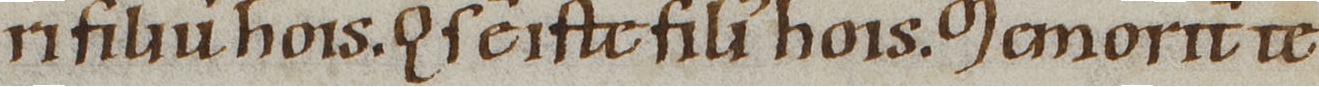 ri filiū hois. Qͥs ē iste fili᾽ hois. Memorit̄ te